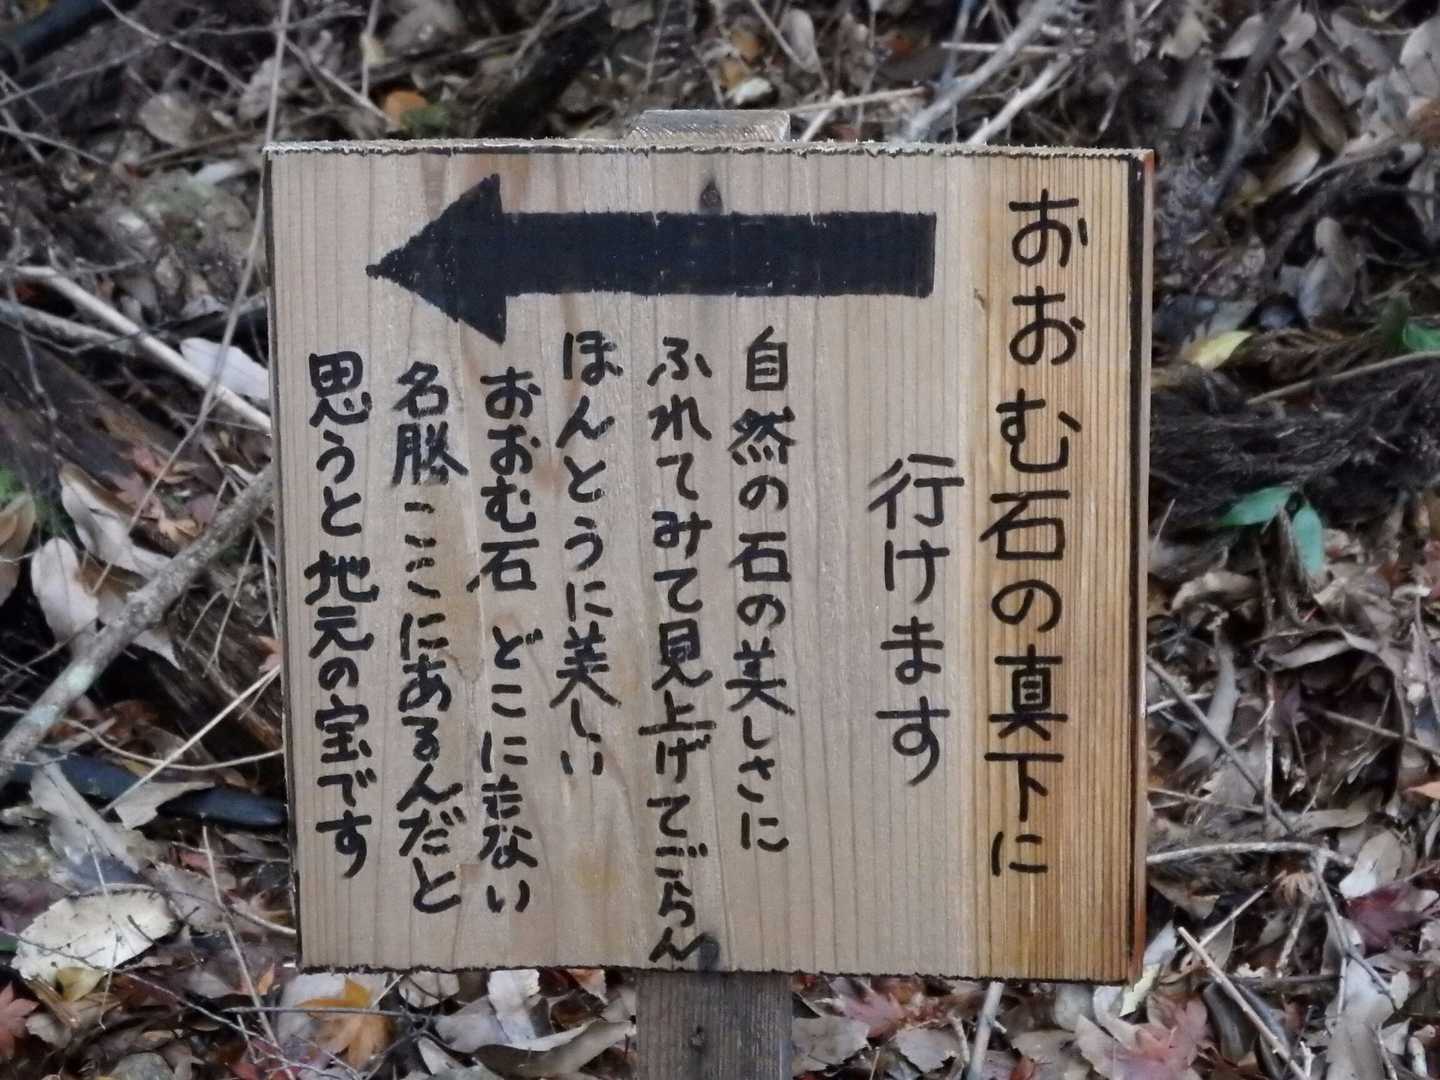 おおむ石の真下に
行けます
自然の石の美しさに
ふれてみて見上げてごらん
ほんとうに美しい
おおむ石 どこにもない
名勝 ここにあるんだと
思うと地元の宝です